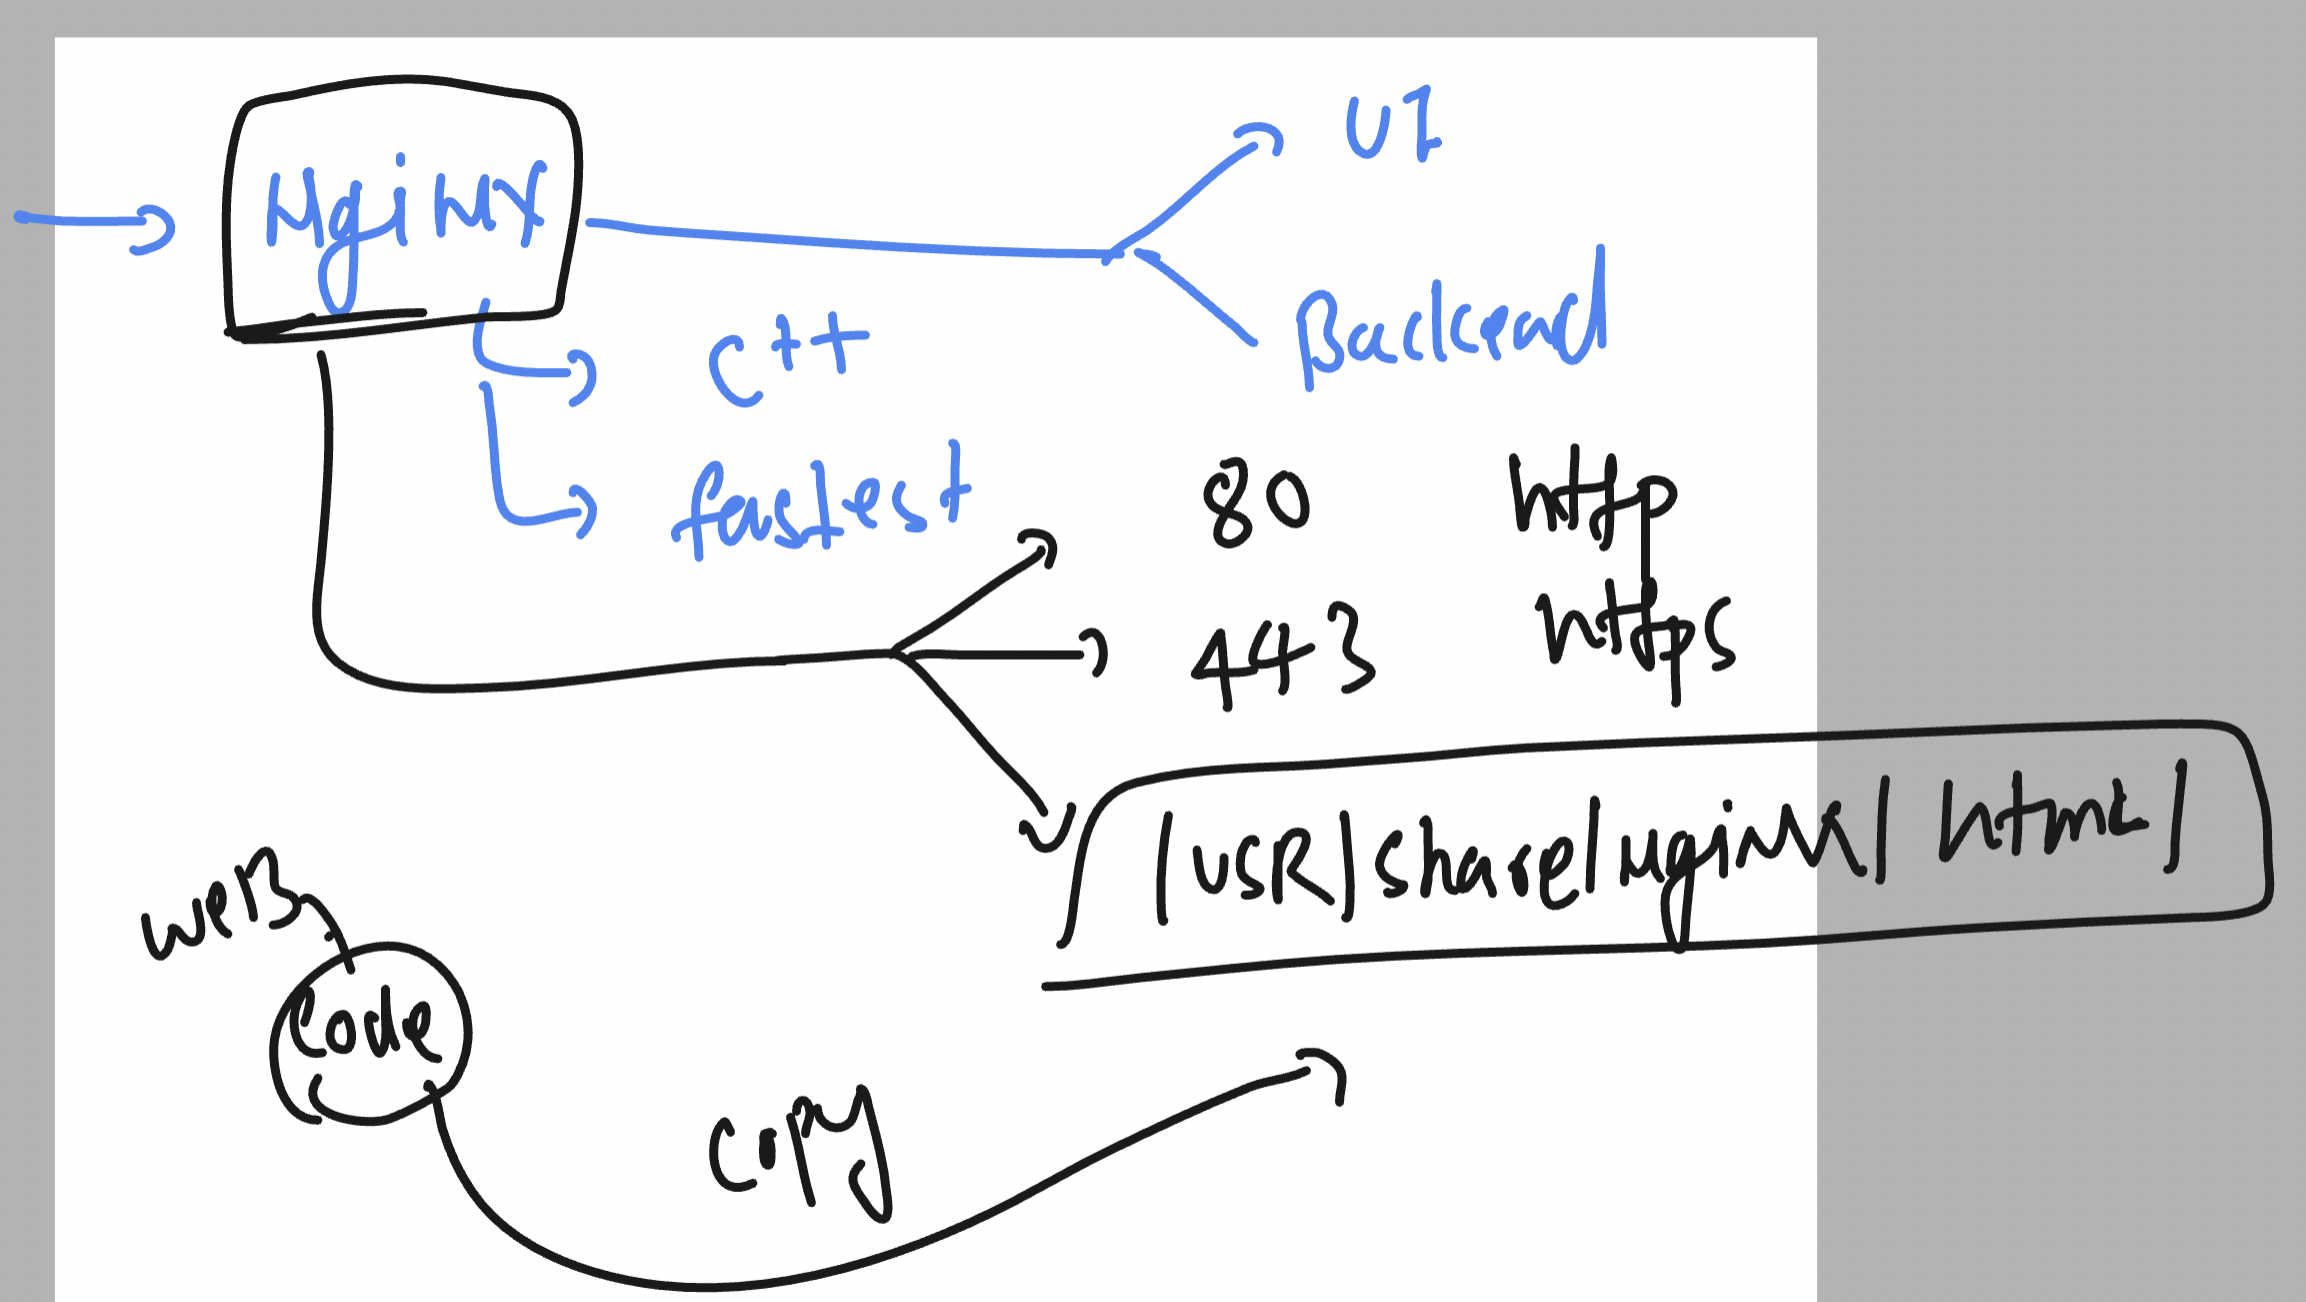 Nginx
UI
Backend
C++
fastest
80 http
443 https
/usR/share/nginx/html/
weB
Code
Copy